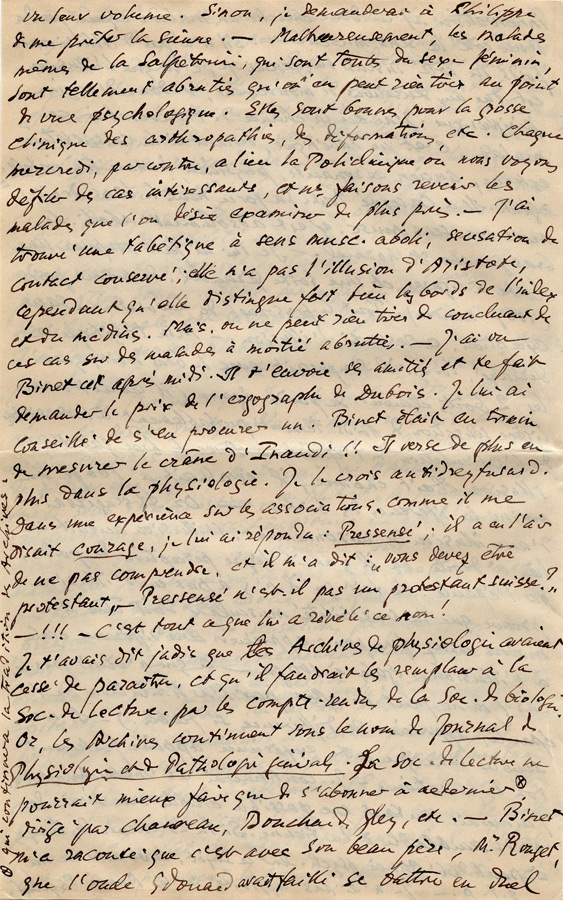 un seul volume. Sinon, je demanderai à Philippe
de me prêter la sienne. — Malheureusement, les malades
mêmes de la Salpêtrière, qui sont toutes du sexe féminin,
sont tellement abruties qu'on en peut rien tirer au point
de vue psychologique. Elles sont bonnes pour la grosse
clinique des arthropathies, des déformations, etc. Chaque
mercredi, par contre, a lieu la Policlinique où nous voyons
défiler des cas intéressants, et ns. faisons revenir les
malades que l'on désire examiner de plus près. — J'ai
trouvé une tabétique à sens musc. aboli, sensation de
contact conservé ; elle n'a pas l'illusion d'Aristote,
cependant qu'elle distingue fort bien les bords de l'index
et du médius. Mais on ne peut rien tirer de concluant de
ces cas sur des malades à moitié abruties. — J'ai vu
Binet cet après midi. Il t'envoie ses amitiés et te fait
demander le prix de l'ergographe de Dubois. Je lui ai
conseillé de s'en procurer un. Binet était en train
de mesurer le crâne d'Inaudi !! Il verse de plus en
plus dans la physiologie. Je le crois antidreyfusard.
Dans une expérience sur les associations, comme il me
disait courage, je lui ai répondu : Pressensé ; il a eu l'air
de ne pas comprendre, et il m'a dit : „vous devez être
protestant„ — Pressensé n'est-il pas un protestant suisse?„
— !!! — C'est tout ce que lui a révélé ce nom!
Je t'avais dit jadis que les Archives de physiologie avaient
cessé de paraître, et qu'il faudrait les remplacer à la
Soc. de lecture par les compte-rendus de la Soc. de biologie.
Or, les Archives continuent sous le nom de Journal de
Physiologie et de Pathologie générale. La Soc. de lecture ne
pourrait mieux faire que de s'abonner à ce dernier ⊗
dirigé par Chauveau, Bouchard, Gley, etc. — Binet
m'a raconté que c'est avec son beau père, Mr Rouget,
que l'oncle Edouard avait failli se battre en duel
⊗ qui continuera la tradition des Archives.